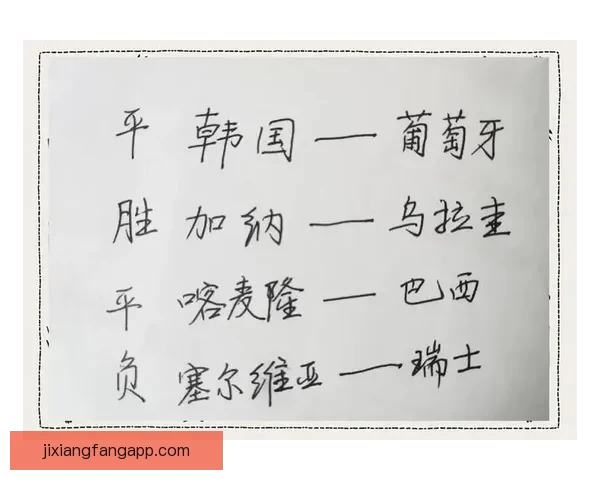 平 韩国 — 葡萄牙
胜 加纳 — 乌拉圭
平 喀麦隆 — 巴西
负 塞尔维亚 — 瑞士
jixiangfangapp.com